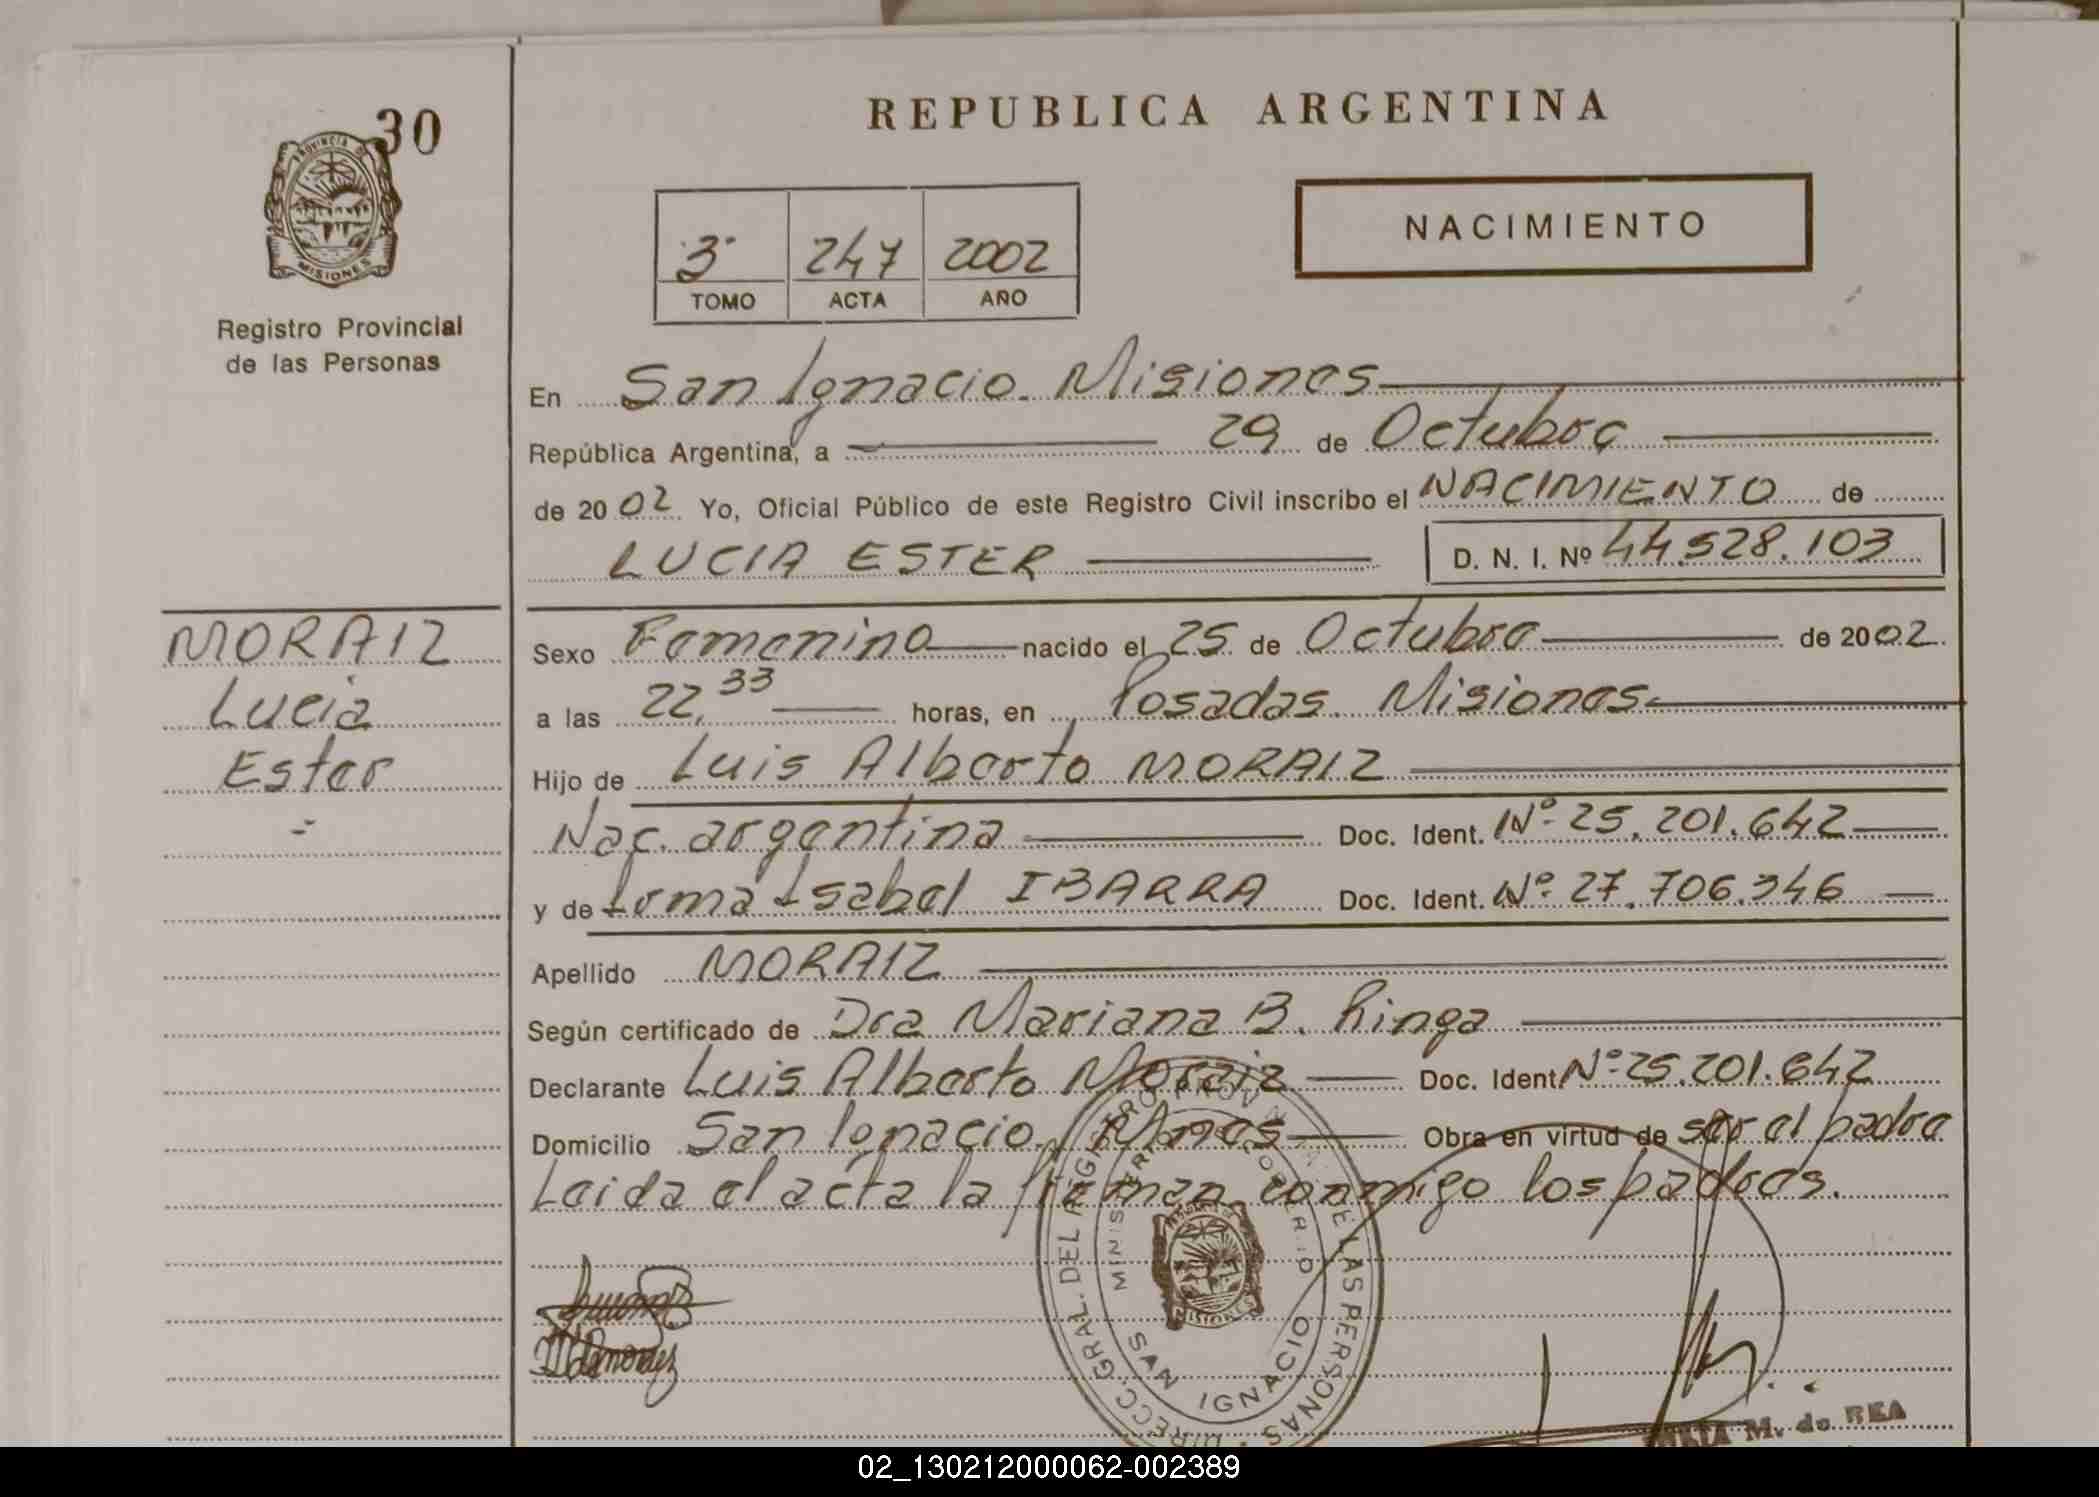 30
REPUBLICA ARGENTINA
PROVINCIA DE
MISIONES
3 247 2002
TOMO ACTA AÑO
NACIMIENTO
Registro Provincial
de las Personas
En San Ignacio. Misiones
República Argentina, a 29 de Octubre
de 2002 Yo, Oficial Público de este Registro Civil inscribo el NACIMIENTO de
LUCIA ESTER D. N. I. Nº 44.528.103
MORAIZ
Lucia
Ester
Sexo Femenino nacido el 25 de Octubre de 2002.
a las 22,33 horas, en Posadas. Misiones
Hijo de Luis Alberto MORAIZ
Nac. argentina Doc. Ident. Nº 25.201.642
y de Irma Isabel IBARRA Doc. Ident. Nº 27.706.346
Apellido MORAIZ
Según certificado de Dra Mariana B. Ringa
Declarante Luis Alberto Moraiz Doc. Ident Nº 25.201.642
Domicilio San Ignacio, Mnes Obra en virtud de ser el padre
Leida el acta la firman conmigo los padres.
DIRECC. GRAL. DEL REGISTRO PROV. DE LAS PERSONAS
SAN IGNACIO
MISIONES
M. de REA
02_130212000062-002389